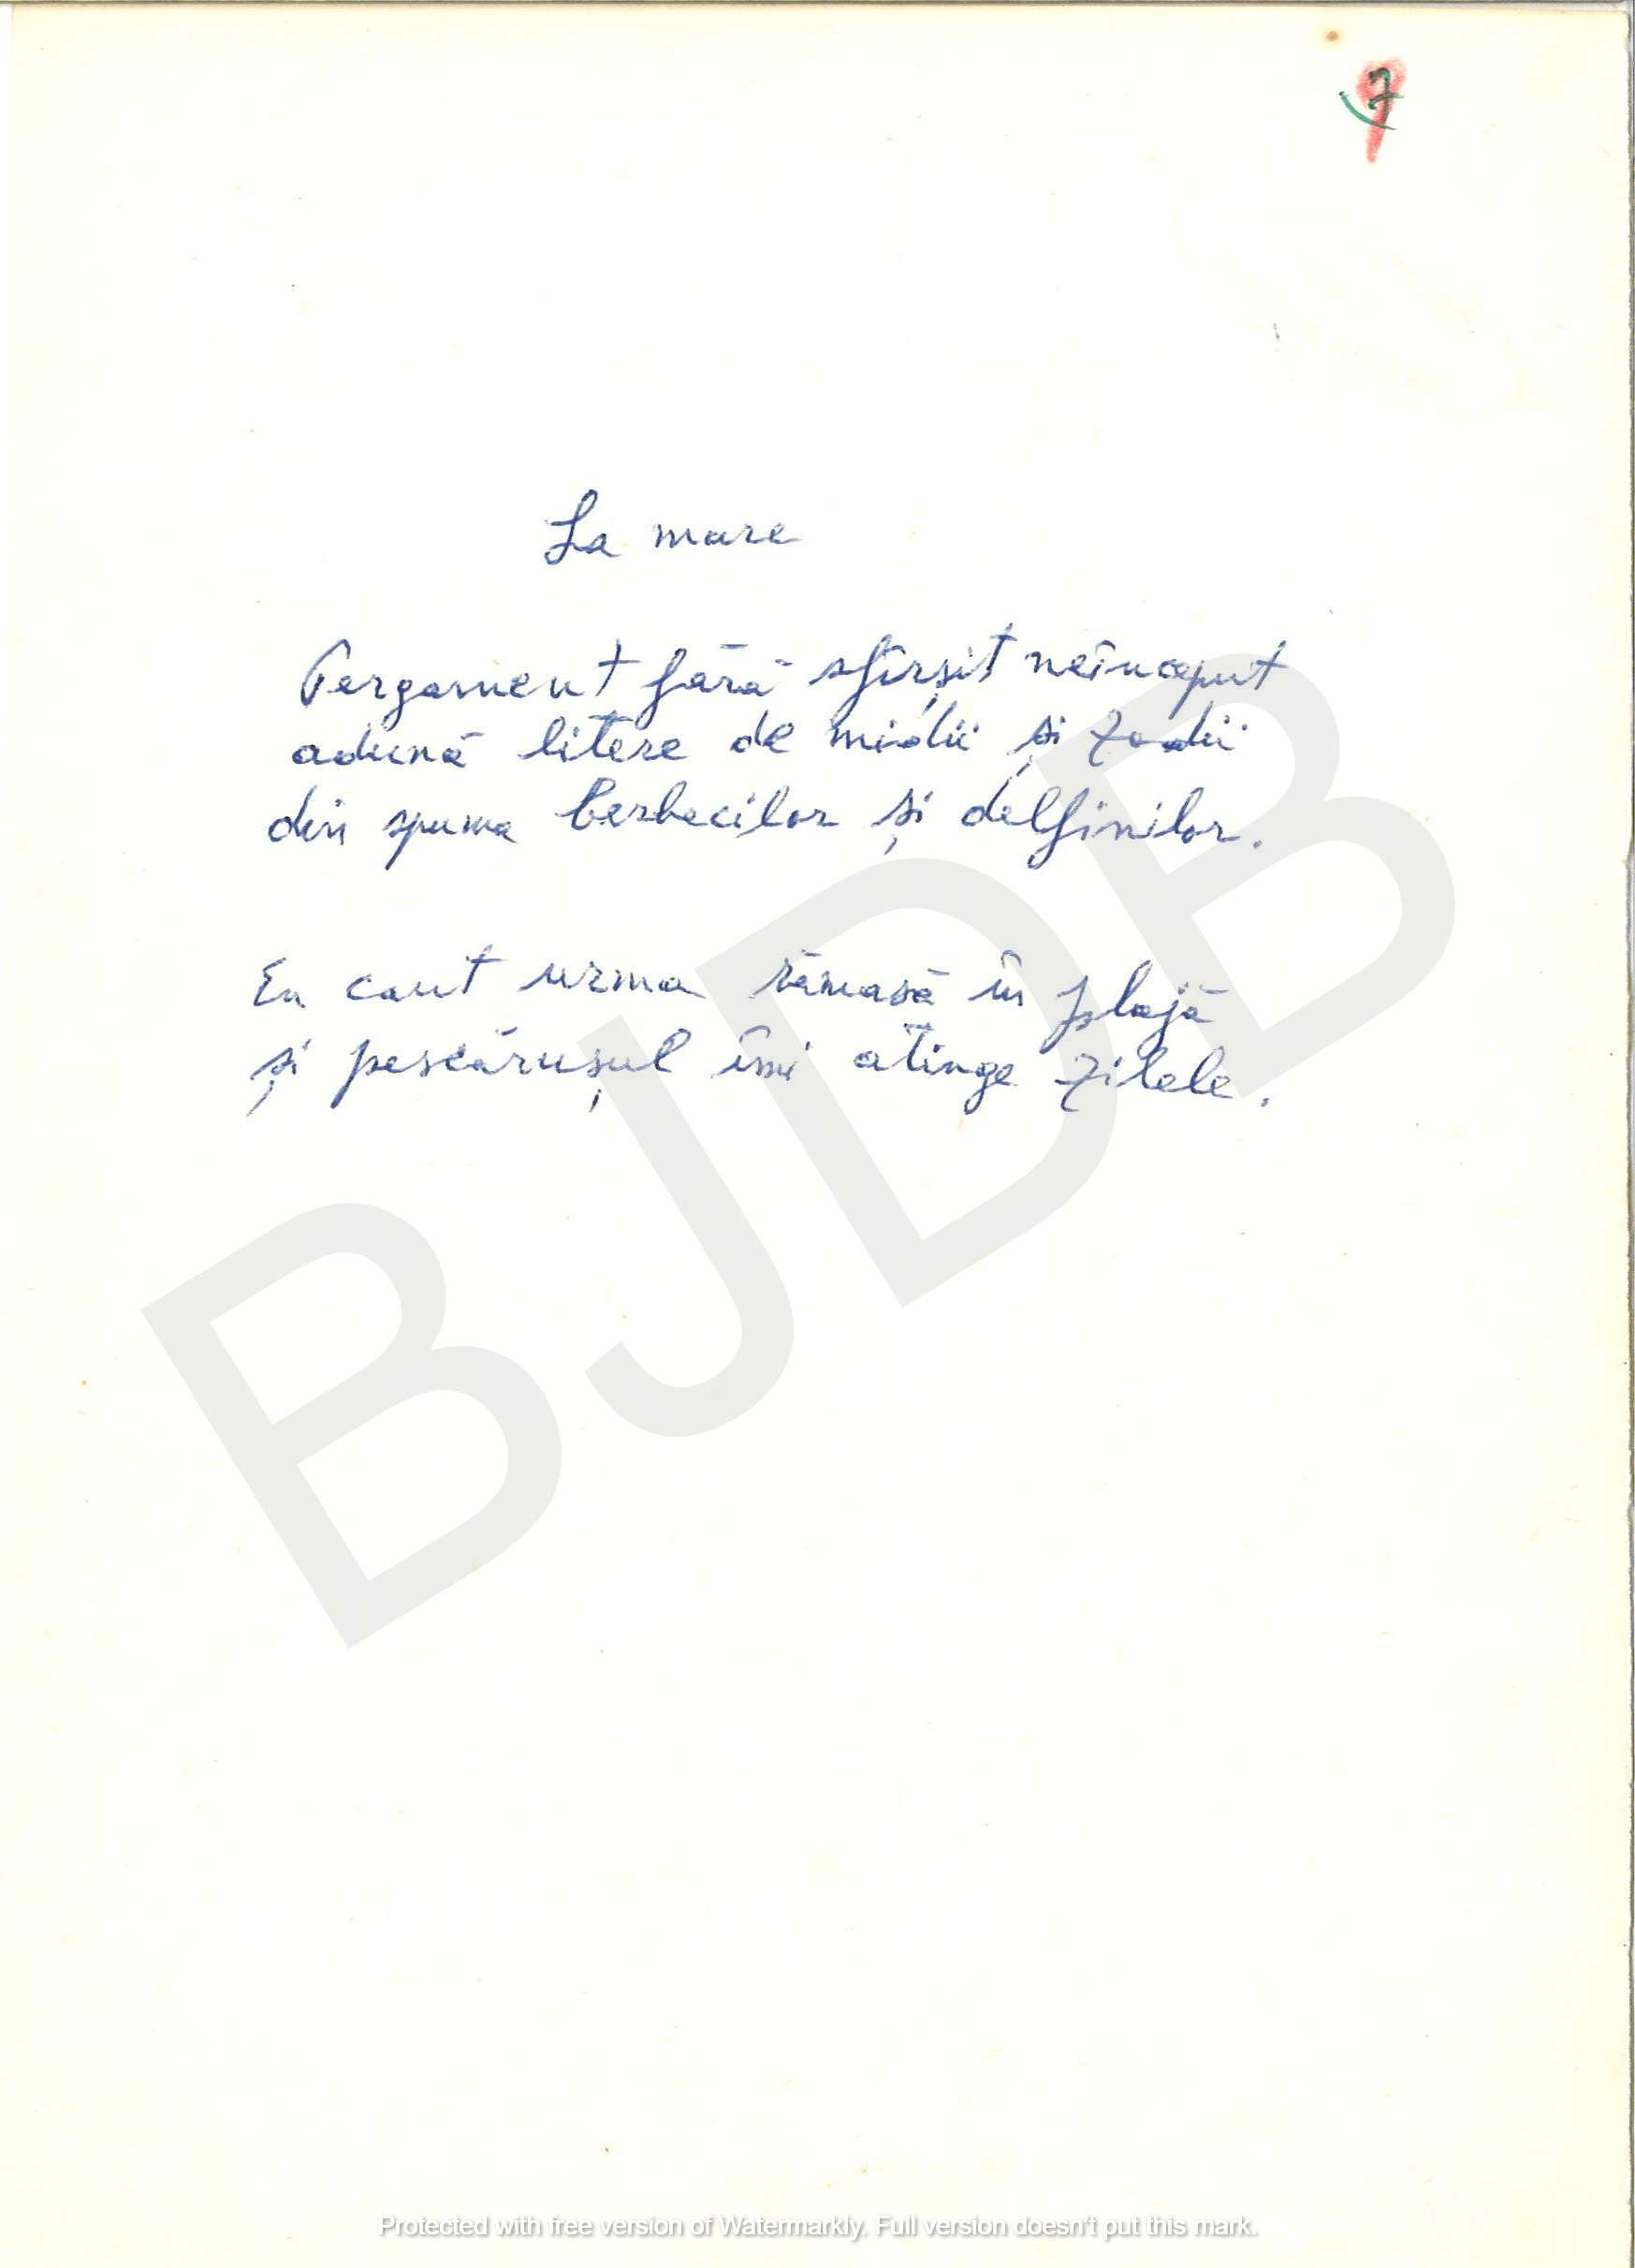 7
La mare
Pergament fără sfîrșit neînceput
adună litere de midii și zodii
din spuma berbecilor și delfinilor.
Eu caut urma rămasă în plajă
și pescărușul îmi atinge zilele.
BJDB
Protected with free version of Watermarkly. Full version doesn't put this mark.